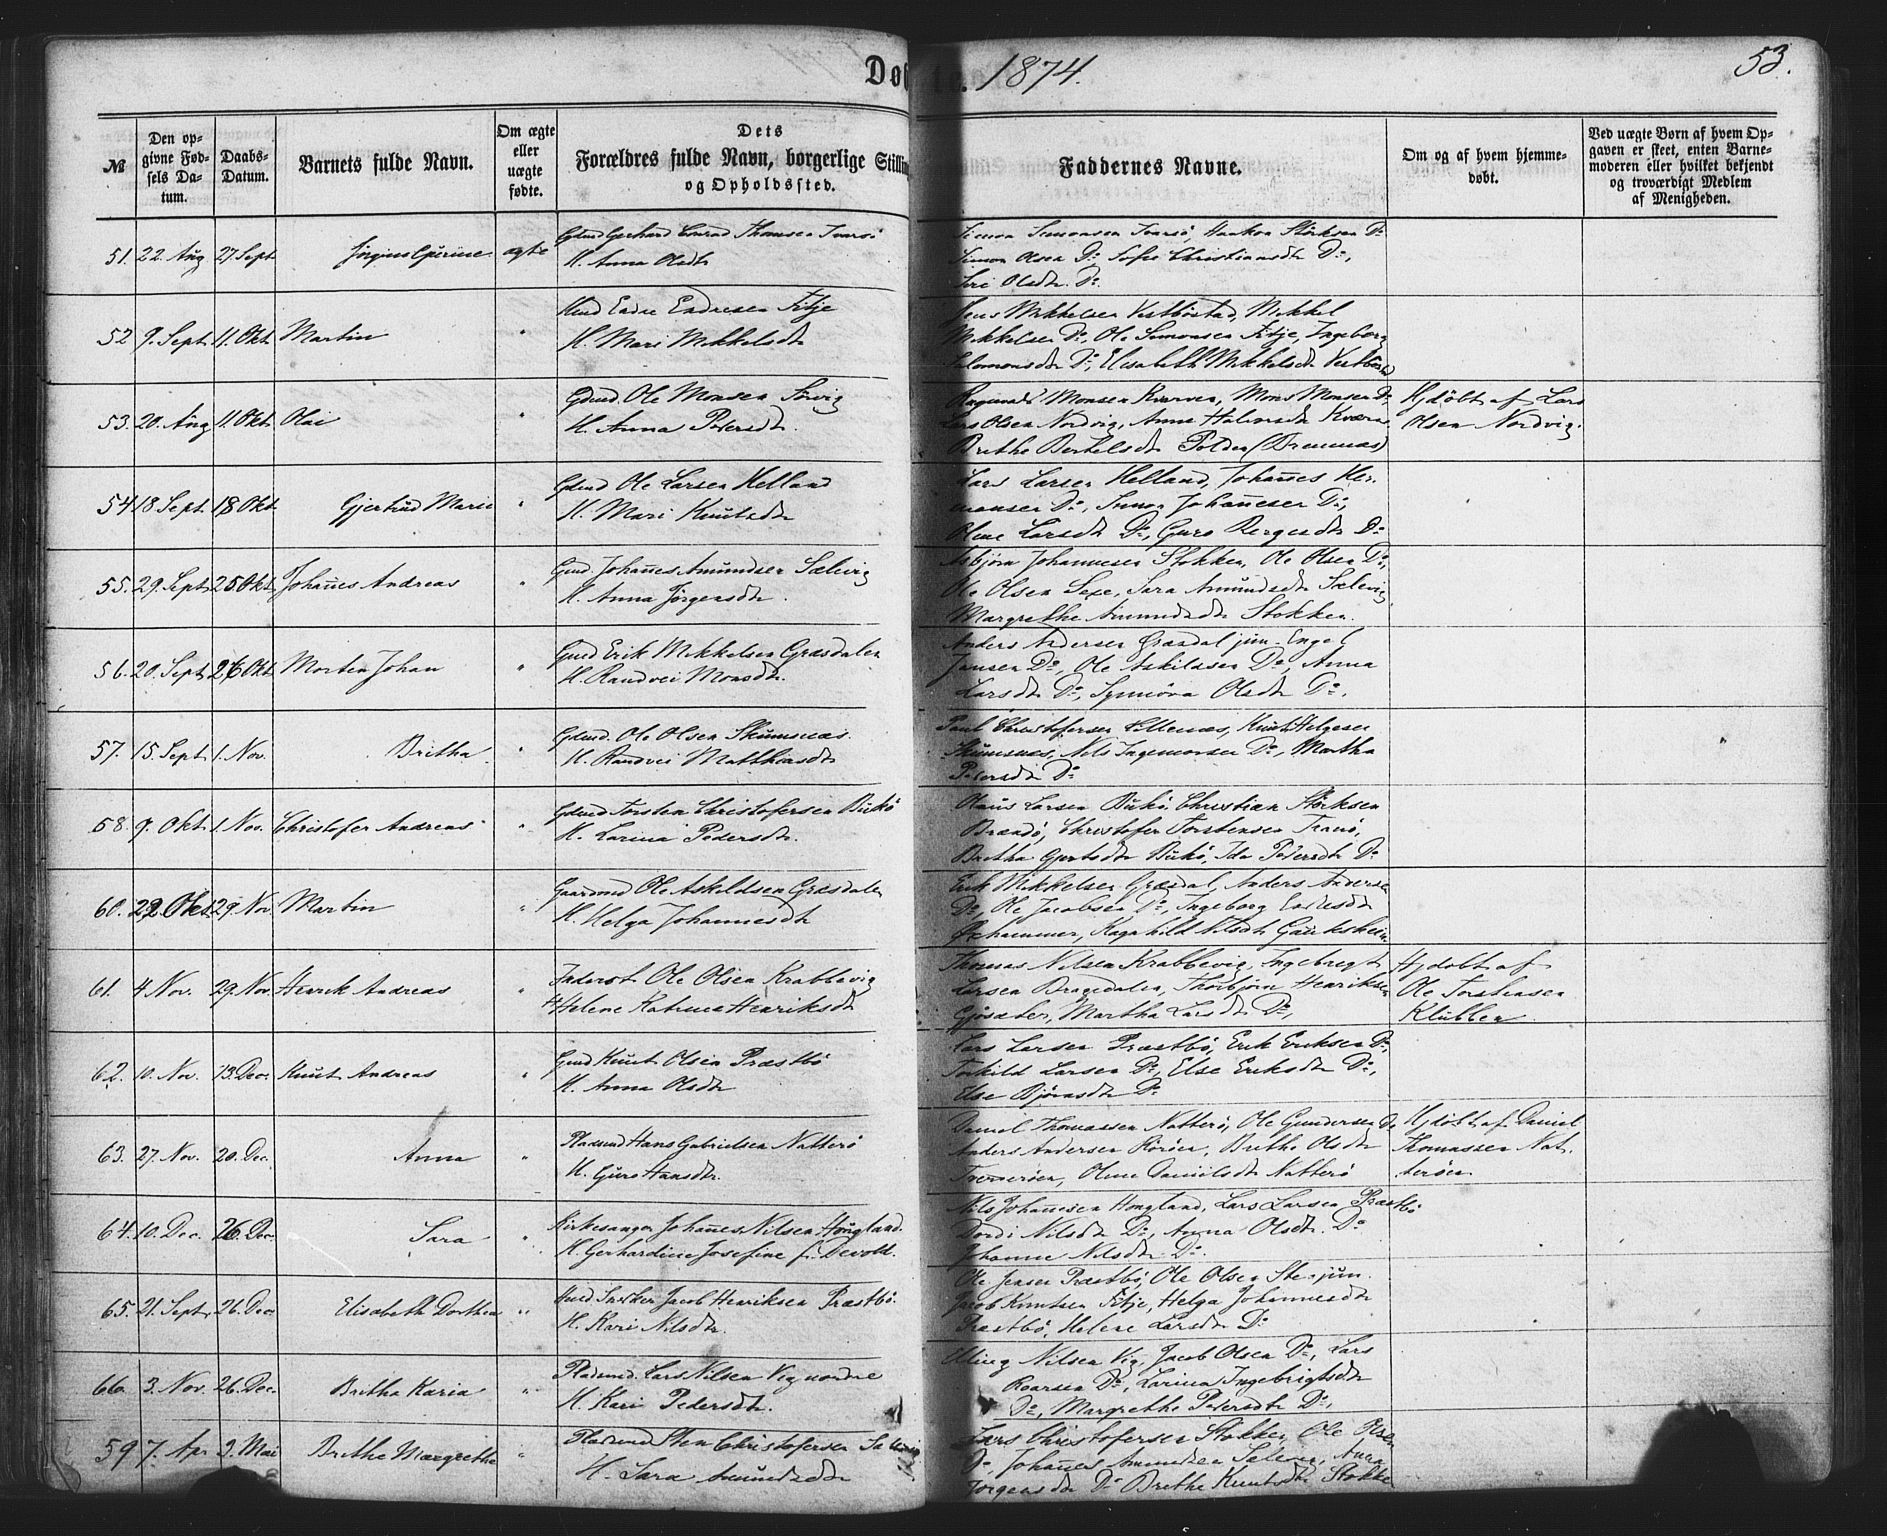 Døbte. 1874. 53.
№
Den opgivne Fødsels Datum.
Daabs-Datum.
Barnets fulde Navn.
Om ægte eller uægte fødte.
Dets Forældres fulde Navn, borgerlige Stilling og Opholdssted.
Faddernes Navne.
Om og af hvem hjemmedøbt.
Ved uægte Børn af hvem Opgaven er skeet, enten Barnemoderen eller hvilket bekjendt og troværdigt Medlem af Menigheden.
51. 22. Aug 27. Sept Jørgine Gjerine ægte Gdmd Gerhard Conrad Thomsen
H. Anna Olsdtr
Simon Simonsen, Haakon Størksen Do
Simon Olsen Do, Sofie Christiansdtr Do,
Siri Olsdtr. Do
52 9. Sept 11. Okt Martin " Hmd Endre Endresen Fitje
H. Mari Mikkelsdtr
Jens Mikkelsen Vestbøstad, Mikkel
Mikkelsen Do, Ole Simonsen Fitje, Ingeborg
Salomonsdtr Do, Elisabeth Mikkelsdtr Vestbøstad
53. 20. Aug 11. Okt Olai " Gdmd. Ole Monsen Sørvig
H. Anna Pedersdtr.
Ragnald Monsen Kverven, Mons Monsen Do,
Lars Olsen Nordvig, Anna Halvorsdtr Kværn
Brithe Bertelsdtr Polden (Bremnæs)
Hjdøbt af Lars
Olsen Nordvig.
54 18 Sept. 18 Okt. Gjertrud Marie " Gdmd Ole Larsen Helland
H. Mari Knutsdtr
Lars Larsen Helland, Johañes Her-
mansen Do, Simon Johañesen Do,
Oline Larsdtr Do, Guro Bergesdtr Do
55. 29. Sept 25 Okt. Johañes Andreas " Gmd. Johañes Amundsen Sælevig
H. Anna Jørgensdtr.
Asbjørn Johannesen Stokken, Ole Olsen Do,
Ole Olsen Sexe, Sara Amundsdtr Sælevig
Margrethe Amundsdtr Stokken.
56. 20. Sept 26 Okt Morten Johan " Gmd Erik Mikkelsen Græsdalen
H. Randvei Monsdtr.
Anders Andersen Græsdal jun. Engel
Jansen Do, Ole Askildsen Do, Anna
Larsdtr Do, Synnøva Olsdtr Do.
57. 15. Sept 1. Nov. Britha " Gdmd. Ole Olsen Skumsnæs.
H. Randvei Matthiasdtr
Paul Christofersen, Knut Helgesen
Skumsnæs, Nils Ingemorsen Do, Martha
Pedersdtr Do
58. 9. Okt. 1. Nov. Christofer Andreas " Gdmd Torsten Christofersen Bukø
H. Larina Pedersdtr.
Olaus Larsen Bukø. Christian Størksen
Brandø, Christofer Torstensen Tranø,
Britha Gjertsdtr Bukø, Ida Pedersdtr Do
60. 22. Okt 29. Nov Martin " Gaardmd Ole Askildsen Græsdalen
H. Helga Johannesdtr
Erik Mikkelsen Græsdal, Anders Andersen
Do, Ole Jacobsen Do, Ingeborg Endresdtr
Øxhammer, Ragnhild Nilsdtr Gaukshein
61. 4 Nov. 29. Nov. Henrik Andreas " Inderst Ole Olsen Krabbevig
H. Helene Katrine Henriksdtr
Thomas Nilsen Krabbevig, Ingebregt
Larsen Dragedalen, Thorbjørn Henriksen
Gjøsæter, Martha Larsdtr Do,
Hjdøbt af
Ole Torstensen
Klubben
62. 10. Nov. 13. Dec. Knut Andreas " Gmd Knut Olsen Præstbø
H. Anna Olsdtr
Lars Larsen Præstbø, Erik Eriksen Do,
Torkild Larsen Do, Else Eriksdtr Do,
Else Bjørnsdtr Do
63. 27. Nov. 20. Dec. Anna " Pladsmd Hans Gabrielsen Natterø
H. Guro Hansdtr.
Daniel Thomassen Natterø, Ole Gundersen Do
Anders Andersen Rørøen, Brithe Olsdtr
Oline Danielsdtr Natterø
Hjdøbt af Daniel
Thomassen Nat-
terøen
64. 10. Dec. 26. Dec. Sara " Kirkesanger Johañes Nilsen Hougland.
H. Gerhardine Josefine f. Devold.
Nils Johañesen Hougland, Lars Larsen Præstbø
Dordi Nilsdtr Do, Anna Olsdtr Do
Johanne Nilsdtr Do
65. 21. Sept. 26. Dec. Elisabeth Dorthea " Hmd. Snekker Jacob Henriksen Præstbø.
H. Kari Nilsdtr.
Ole Jensen Præstbø, Ole Olsen Ste. jun.
Jacob Knutsen Fitje, Helga Johannesdtr
Præstbø, Helene Larsdtr Do
66. 3. Nov. 26. Dec. Britha Karia " Pladsmd. Lars Nilsen Vig nordre
H. Kari Pedersdtr.
Elling Nilsen Vig, Jacob Olsen Do, Lars
Roarsen Do, Larina Ingebrigtsdtr
Do, Margrethe Pedersdtr Do,
59 7. Apr 3. Mai Brithe Margrethe " Pladsmd Sten Christofersen Sælevig
H. Sara Amundsdtr
Lars Christofersen Stokken, Ole Olsen
Do, Johañes Amundsen Selevig, Anna
Jørgensdtr Do Brithe Knutsdtr Stokke